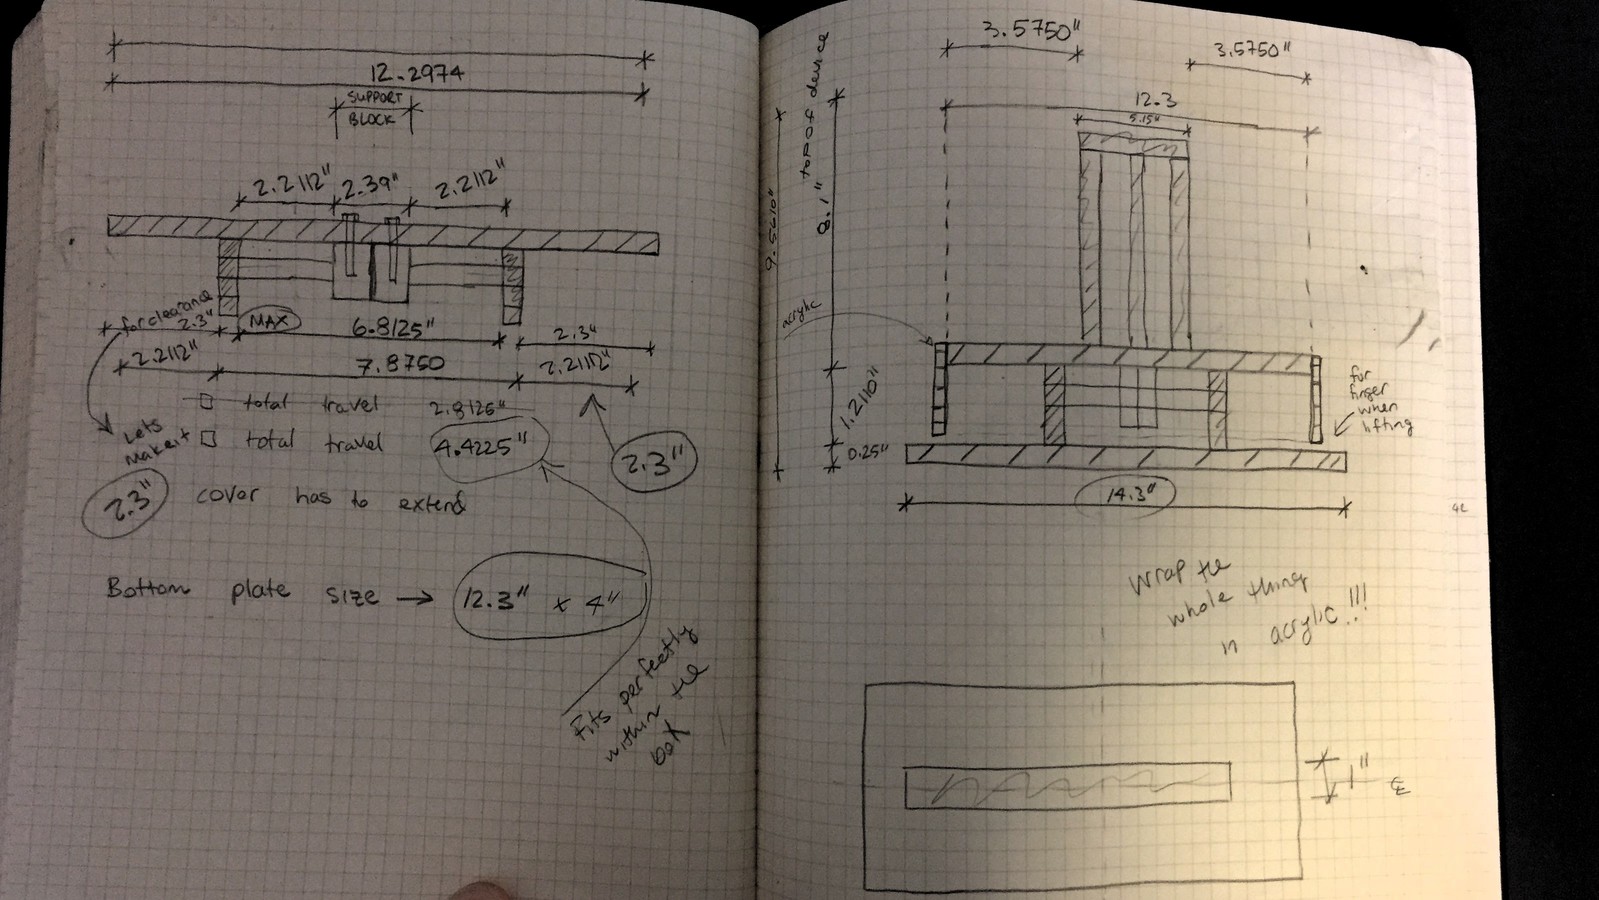 12.2974
SUPPORT
BLOCK
2.2112" 2.39" 2.2112"
for clearance
2.3"
MAX 6.8125" 2.3"
2.2112" 7.8750 2.2112"
total travel 2.8125"
Lets
make it
total travel 4.4225" 2.3"
2.3" cover has to extend
Bottom plate size → 12.3" x 4"
Fits perfectly
within the
box
3.5750" 3.5750"
12.3
5.15"
9.5610"
8.1" top of device
acrylic
1.2110"
0.25"
for
finger
when
lifting
14.3"
42
Wrap the
whole thing
in acrylic!!!
1"